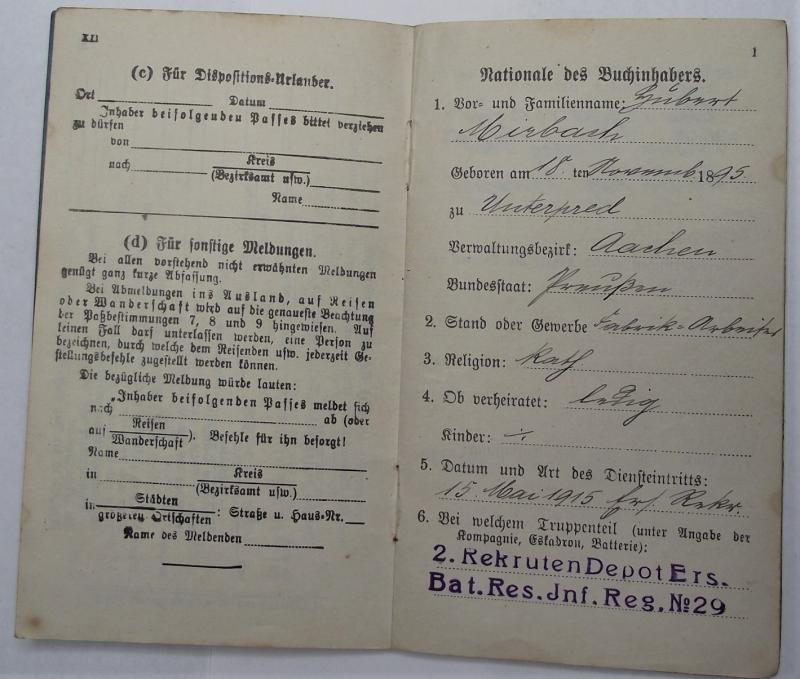 XII
(c) Für Dispositions-Urlauber.
Ort Datum
Inhaber beifolgenden Passes bittet verziehen
zu dürfen
von
nach Kreis
(Bezirksamt usw.)
Name
(d) Für sonstige Meldungen.
Bei allen vorstehend nicht erwähnten Meldungen
genügt ganz kurze Abfassung.
Bei Abmeldungen ins Ausland, auf Reisen
oder Wanderschaft wird auf die genaueste Beachtung
der Paßbestimmungen 7, 8 und 9 hingewiesen. Auf
keinen Fall darf unterlassen werden, eine Person zu
bezeichnen, durch welche dem Reisenden usw. jederzeit Ge-
stellungsbefehle zugestellt werden können.
Die bezügliche Meldung würde lauten:
„Inhaber beifolgenden Passes meldet sich
nach ab (oder
auf Reisen
Wanderschaft). Befehle für ihn besorgt!
Name
in Kreis
(Bezirksamt usw.)
in Städten
größeren Ortschaften: Straße u. Haus-Nr.
Name des Meldenden
1
Nationale des Buchinhabers.
1. Vor- und Familienname: Hubert
Mirbach
Geboren am 18 ten Novemb 1895
zu Unterpred
Verwaltungsbezirk: Aachen
Bundesstaat: Preußen
2. Stand oder Gewerbe Fabrik-Arbeiter
3. Religion: Kath
4. Ob verheiratet: ledig
Kinder: ÷
5. Datum und Art des Diensteintritts:
15. Mai 1915 Ers. Rekr.
6. Bei welchem Truppenteil (unter Angabe der
Kompagnie, Eskadron, Batterie):
2. RekrutenDepotErs.
Bat.Res.Jnf.Reg.№29